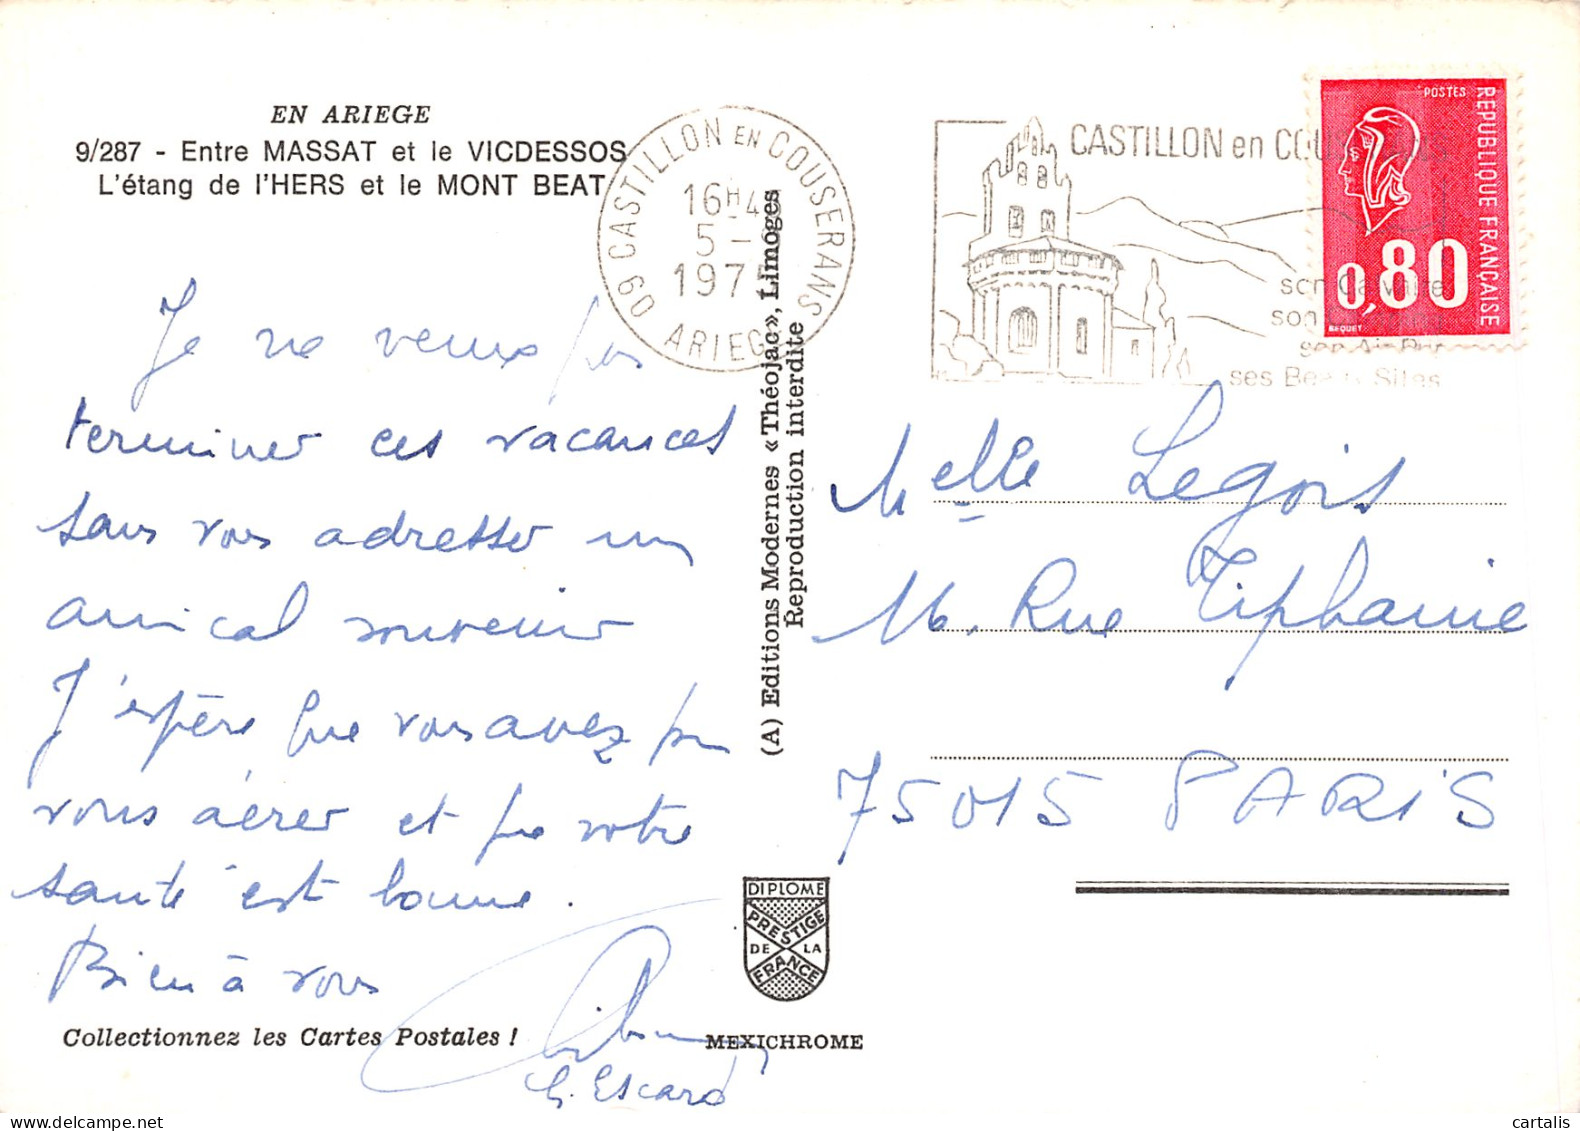 EN ARIEGE
9/287 - Entre MASSAT et le VICDESSOS
L'étang de l'HERS et le MONT BEAT
Je ne veux pas
terminer ces vacances
sans vous adresser un
amical souvenir
J'espère que vous avez pu
vous aérer et que votre
santé est bonne.
Bien à vous
Escard
Collectionnez les Cartes Postales !
09 CASTILLON EN COUSERANS
16H4
5 -
197
ARIEGE
(A) Editions Modernes « Théojac», Limoges
Reproduction interdite
DIPLOME
PRESTIGE
DE LA
FRANCE
MEXICHROME
CASTILLON en
son Calvaire
son
son Air Pur
ses Beaux Sites
POSTES
REPUBLIQUE FRANÇAISE
0,80
BEQUET
Melle Legois
16, Rue Tiphaine
75015 PARIS
cartalis
delcampe.net